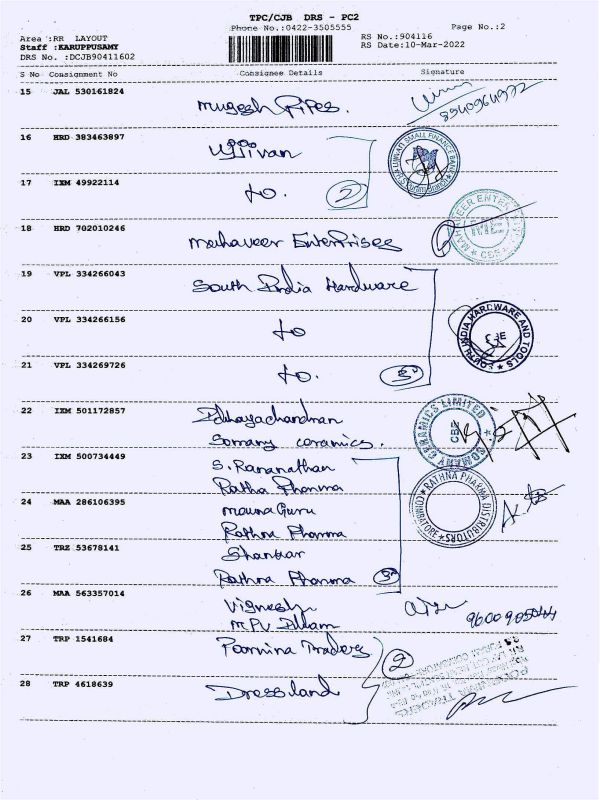 TPC/CJB DRS - PC2
Phone No.:0422-3505555
Page No.:2
Area :RR LAYOUT
RS No.:904116
Staff :KARUPPUSAMY
RS Date:10-Mar-2022
DRS No. :DCJB90411602
S No Consignment No Consignee Details Signature
15 JAL 530161824
Mugesh Pipes.
16 HRD 383463897
Ujjivan
SMALL FINANCE BANK
17 IXM 49922114
to. 2
18 HRD 702010246
Mahaveer Enterprises
MAHAVEER ENTER
ME
CBE
19 VPL 334266043
South India Hardware
20 VPL 334266156
to
INDIA HARDWARE AND TOOLS
21 VPL 334269726
to. 3
22 IXM 501172857
Somany ceramics.
SOMANY CERAMICS LIMITED
CBE
23 IXM 500734449
S. Ranganathan
Ratha Pharma
RATHNA PHARMA DISTRIBUTORS
COIMBATORE
24 MAA 286106395
Mouna Guru
Rathna Pharma
25 TRZ 53678141
Shankar
Rathna Pharma 3
26 MAA 563357014
Vignesh
M.P.V Illam
9600905044
27 TRP 1541684
Poornina Traders
2
28 TRP 4618639
Dressland